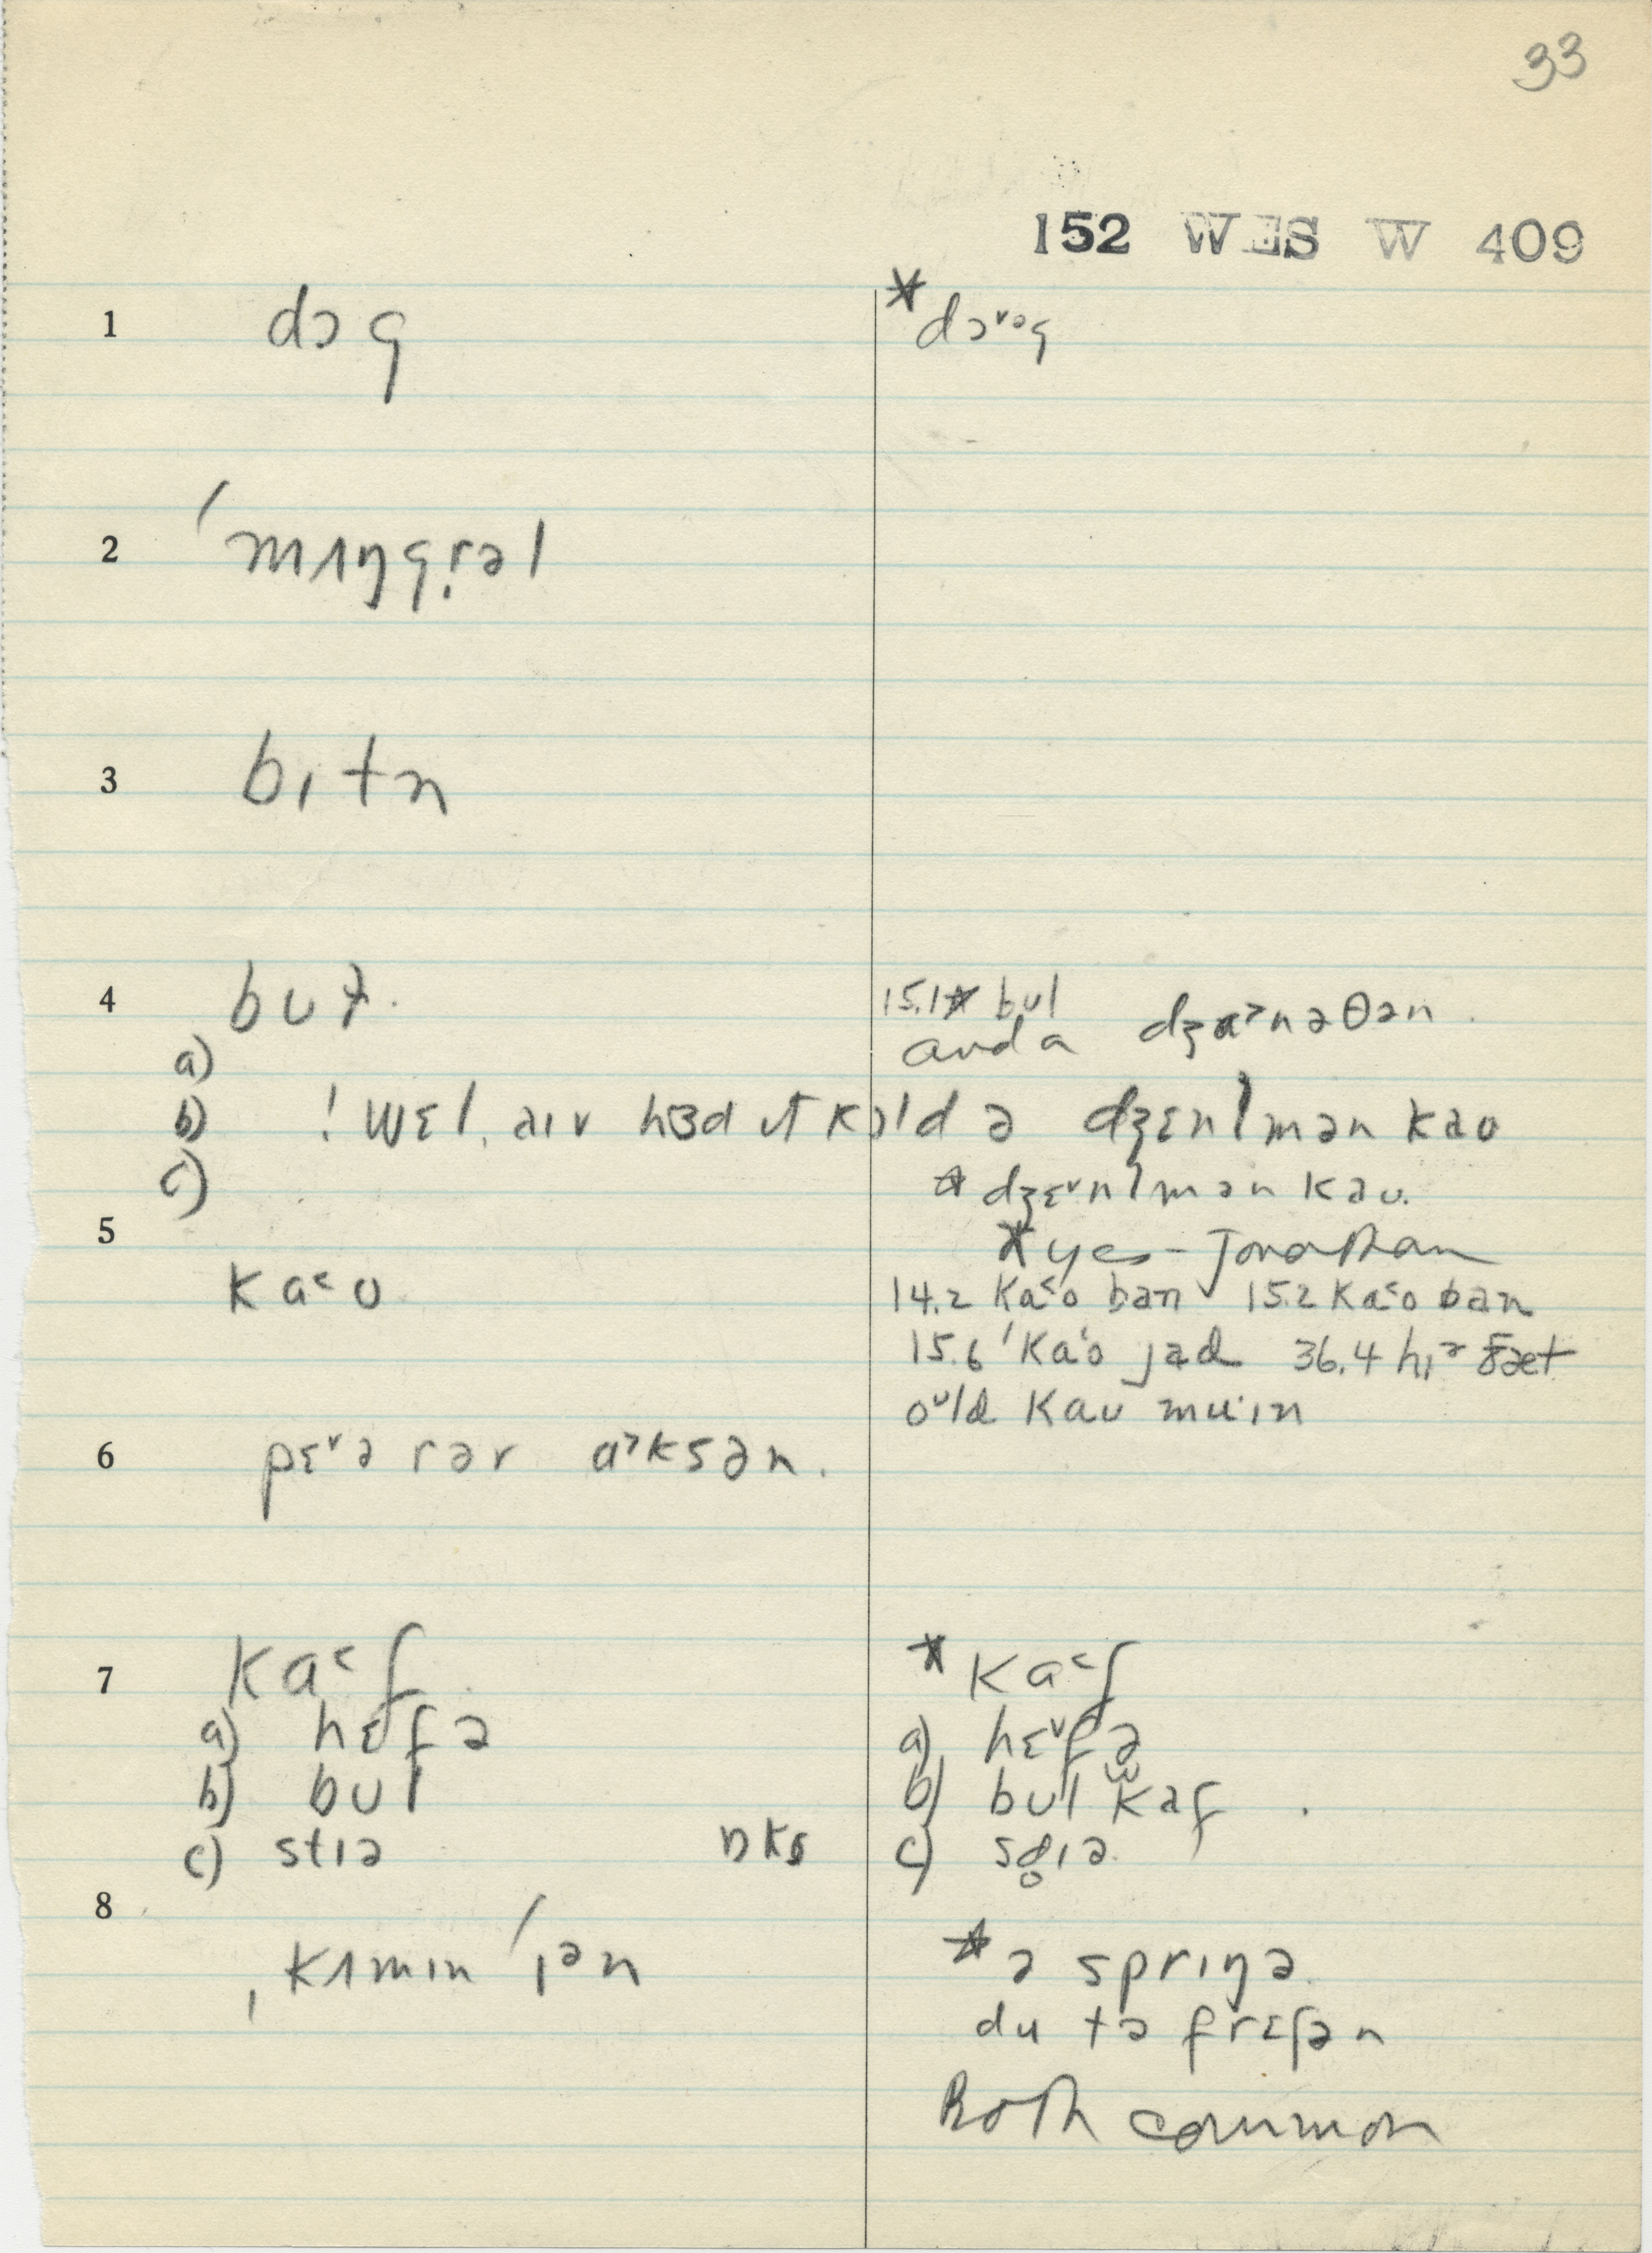 33
152 WES W 409
1 dɔg * dɔ˅ᵊg
2 ˈmʌŋgrəl
3 bɪtn
4 bʊɫ. 15.1 * bʊl
a) and a dʒɑ˃nəθən.
b) ! wɛl, aɪv hɜd ɪt kɔld ə dʒɛnl̩mən kaʊ
c) * dʒɛ˅nl̩mən kaʊ.
* yes - Jonathan
5 ka˂ʊ 14.2 ka˂ʊ ban 15.2 ka˂ʊ ban
15.6 ˈka˂ʊ jad 36.4 hɪᵊ ðæt
oᶸld kaʊ muˑɪn
6 pɛ˅ə rər ɑ˃ksən.
7 ka˂f * ka˂f
a) hɛfə a) hɛ˅fə
b) bʊl b) bʊl kaf
c) stɪə c) sd̥ɪə.
8 ˌkʌmɪn ˈɪən * ə sprɪŋə.
du tə frɛʃən
Both common